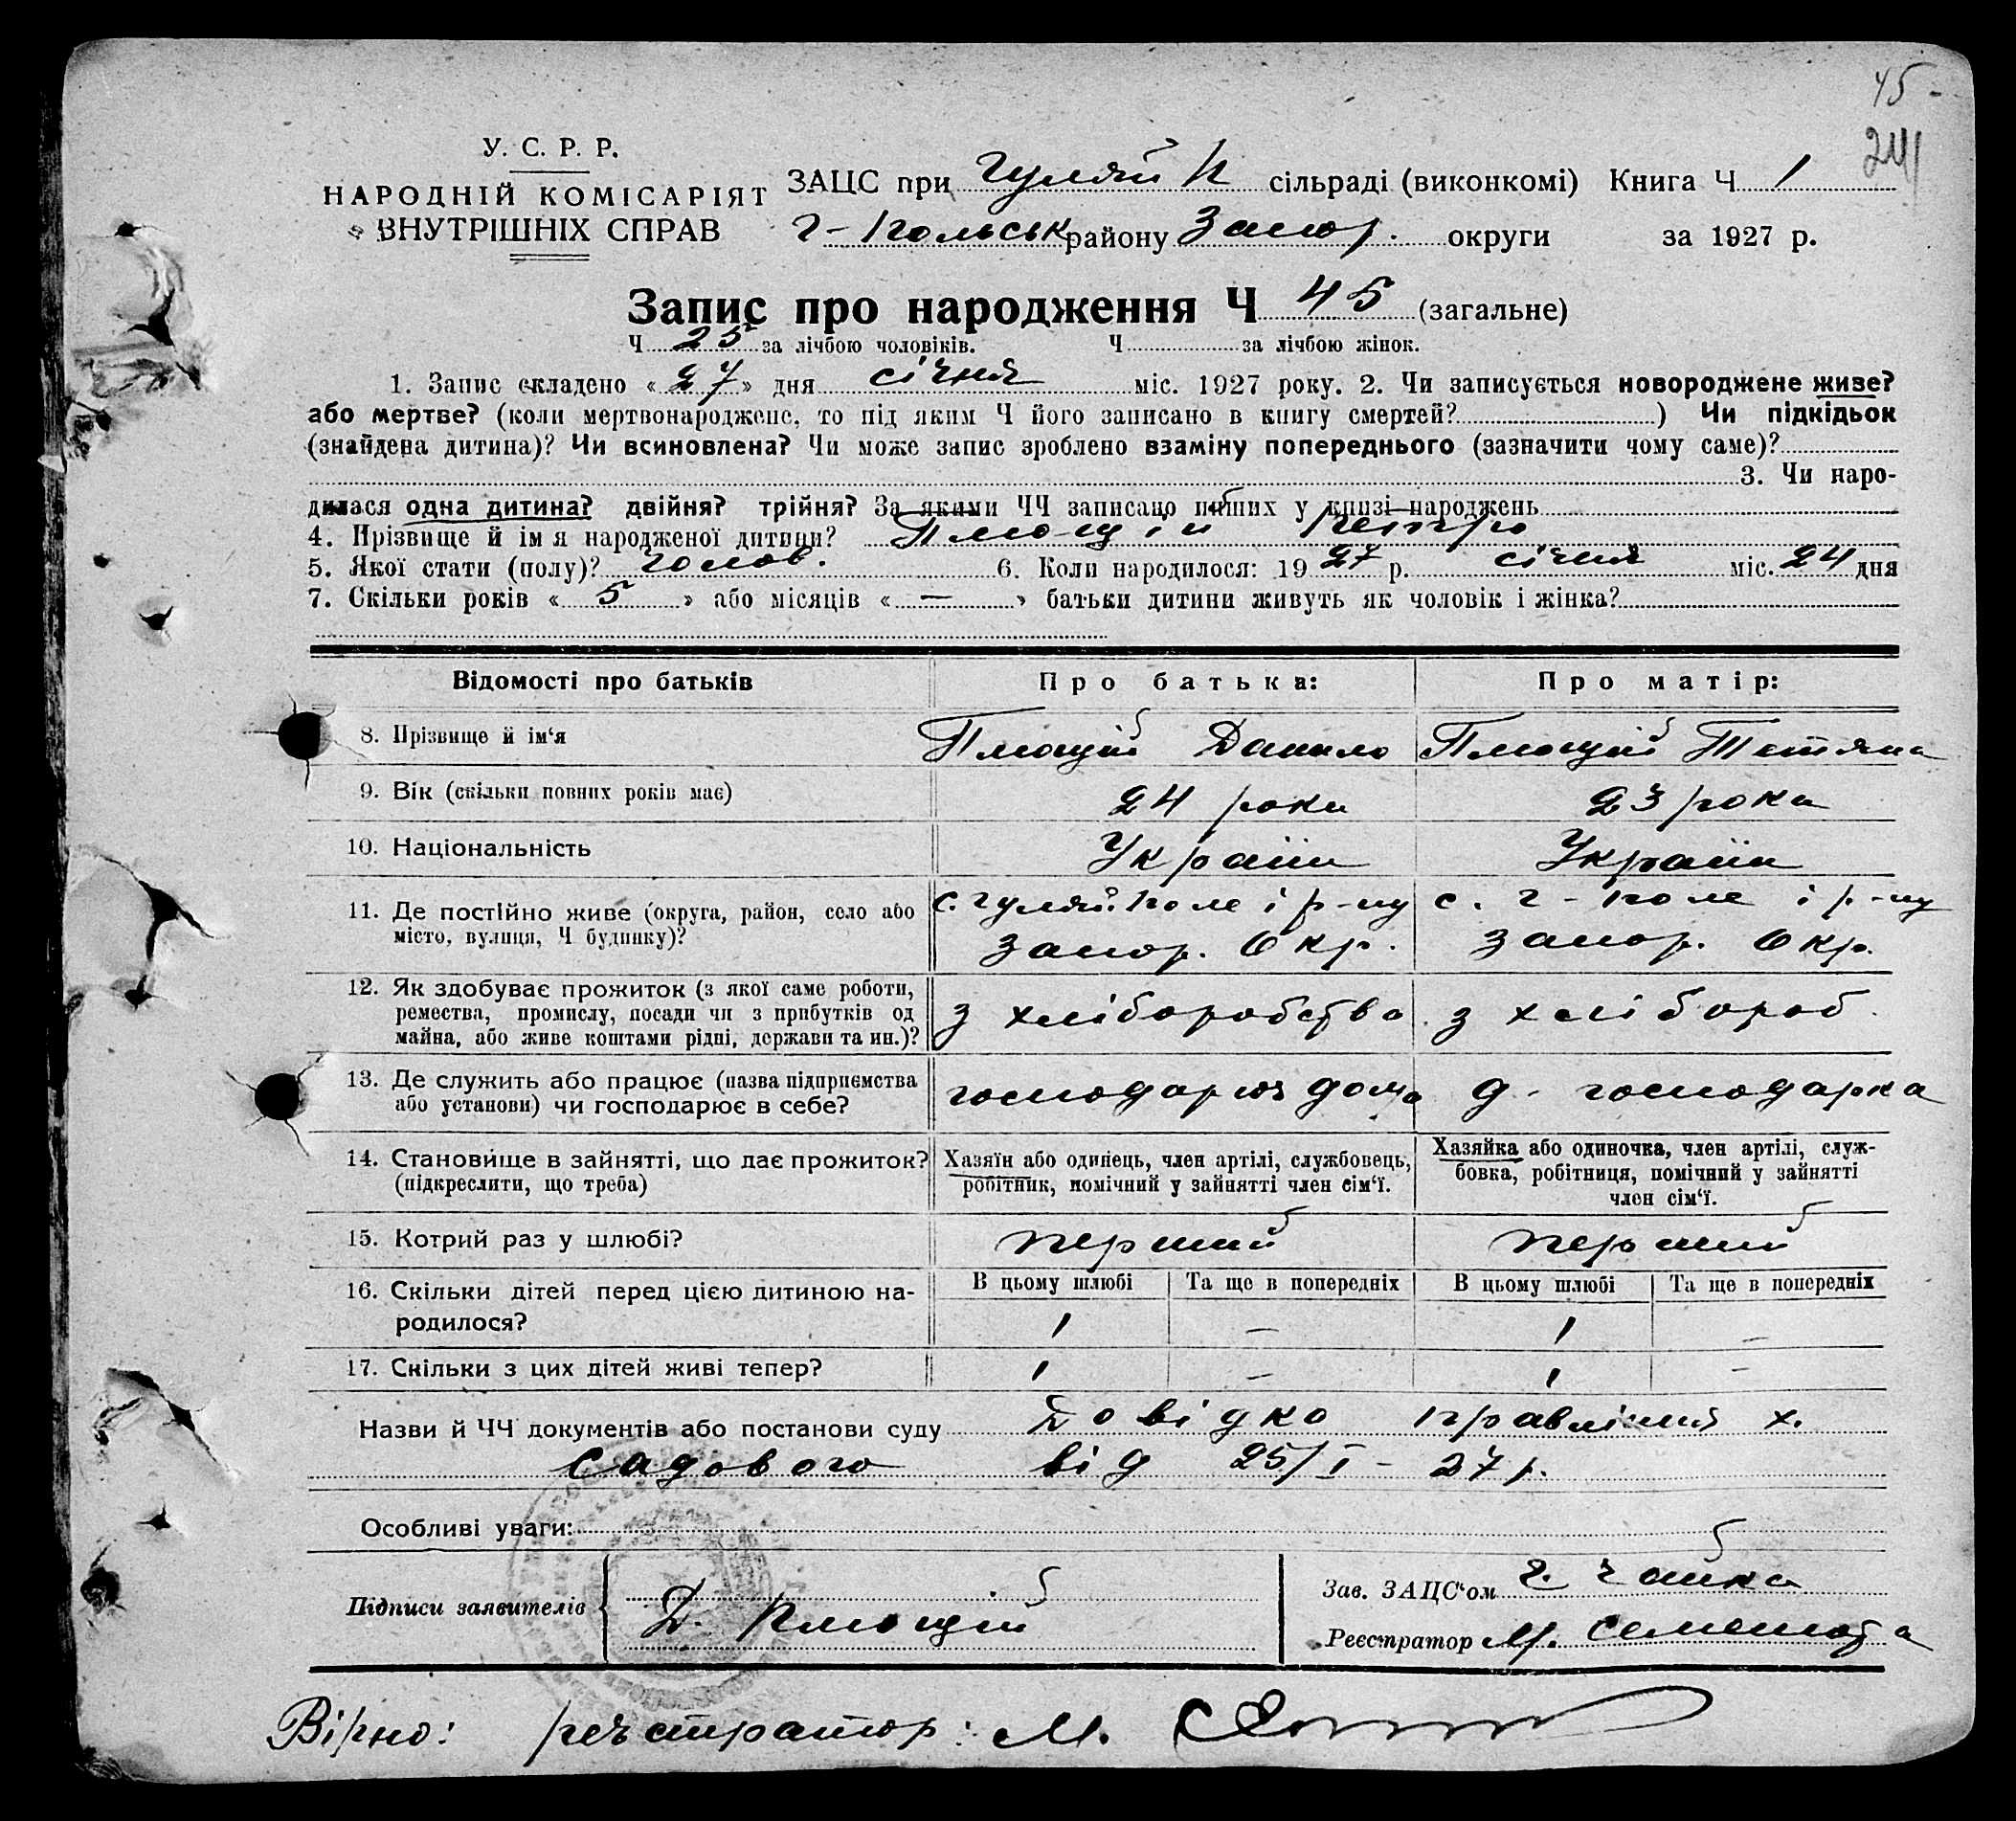 45 -
241
У. С. Р. Р.
НАРОДНІЙ КОМІСАРІЯТ
ВНУТРІШНІХ СПРАВ
ЗАЦС при Гуляй П сільраді (виконкомі) Книга Ч 1
Г-Польськ району Запор. округи за 1927 р.
Запис про народження Ч 45 (загальне)
Ч 25 за лічбою чоловіків. Ч за лічбою жінок.
1. Запис складено « 27 » дня січня міс. 1927 року. 2. Чи записується новороджене живе?
або мертве? (коли мертвонароджене, то під яким Ч його записано в книгу смертей? ) Чи підкідьок
(знайдена дитина)? Чи всиновлена? Чи може запис зроблено взаміну попереднього (зазначити чому саме)?
3. Чи наро-
дилася одна дитина? двійня? трійня? За якими ЧЧ записано инших у книзі народжень
4. Прізвище й ім я народженої дитини? Плющій Петро
5. Якої стати (полу)? чолов. 6. Коли народилося: 19 27 р. січня міс. 24 дня
7. Скільки років « 5 » або місяців « — » батьки дитини живуть як чоловік і жінка?
Відомості про батьків Про батька: Про матір:
8. Прізвище й ім‘я Плющій Данило Плющій Тетяна
9. Вік (скільки повних років має) 24 роки 23 роки
10. Національність Україн Україн
11. Де постійно живе (округа, район, село або с. Гуляй.Поле і р-ну с. Г-Поле і р-ну
місто, вулиця, Ч будинку)? Запор. Окр. Запор. Окр.
12. Як здобуває прожиток (з якої саме роботи,
ремества, промислу, посади чи з прибутків од з хліборобства з хлібороб.
майна, або живе коштами рідні, держави та ин.)?
13. Де служить або працює (назва підприємства господарює дома д. господарка
або установи) чи господарює в себе?
14. Становище в зайнятті, що дає прожиток? Хазяїн або одинець, член артілі, службовець, Хазяйка або одиночка, член артілі, служ-
(підкреслити, що треба) робітник, помічний у зайнятті член сім‘ї. бовка, робітниця, помічний у зайнятті
член сім‘ї.
15. Котрий раз у шлюбі? перший перший
16. Скільки дітей перед цією дитиною на- В цьому шлюбі Та ще в попередніх В цьому шлюбі Та ще в попередніх
родилося? 1 — 1 —
17. Скільки з цих дітей живі тепер? 1 — 1 —
Назви й ЧЧ документів або постанови суду Довідко правління х.
Садового від 25/I - 27 р.
Особливі уваги:
Підписи заявителів Д. Плющій
Зав. ЗАЦС‘ом Г. Чайка
Реєстратор М. Семенюта
Вірно: реєстратор: М.